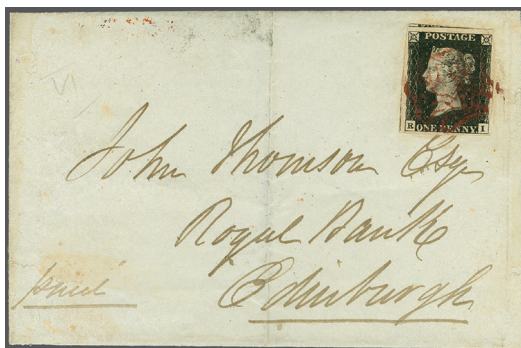 VI
POSTAGE
K I
ONE PENNY
John Thomson Esqr
Royal Bank
Edinburgh
paid